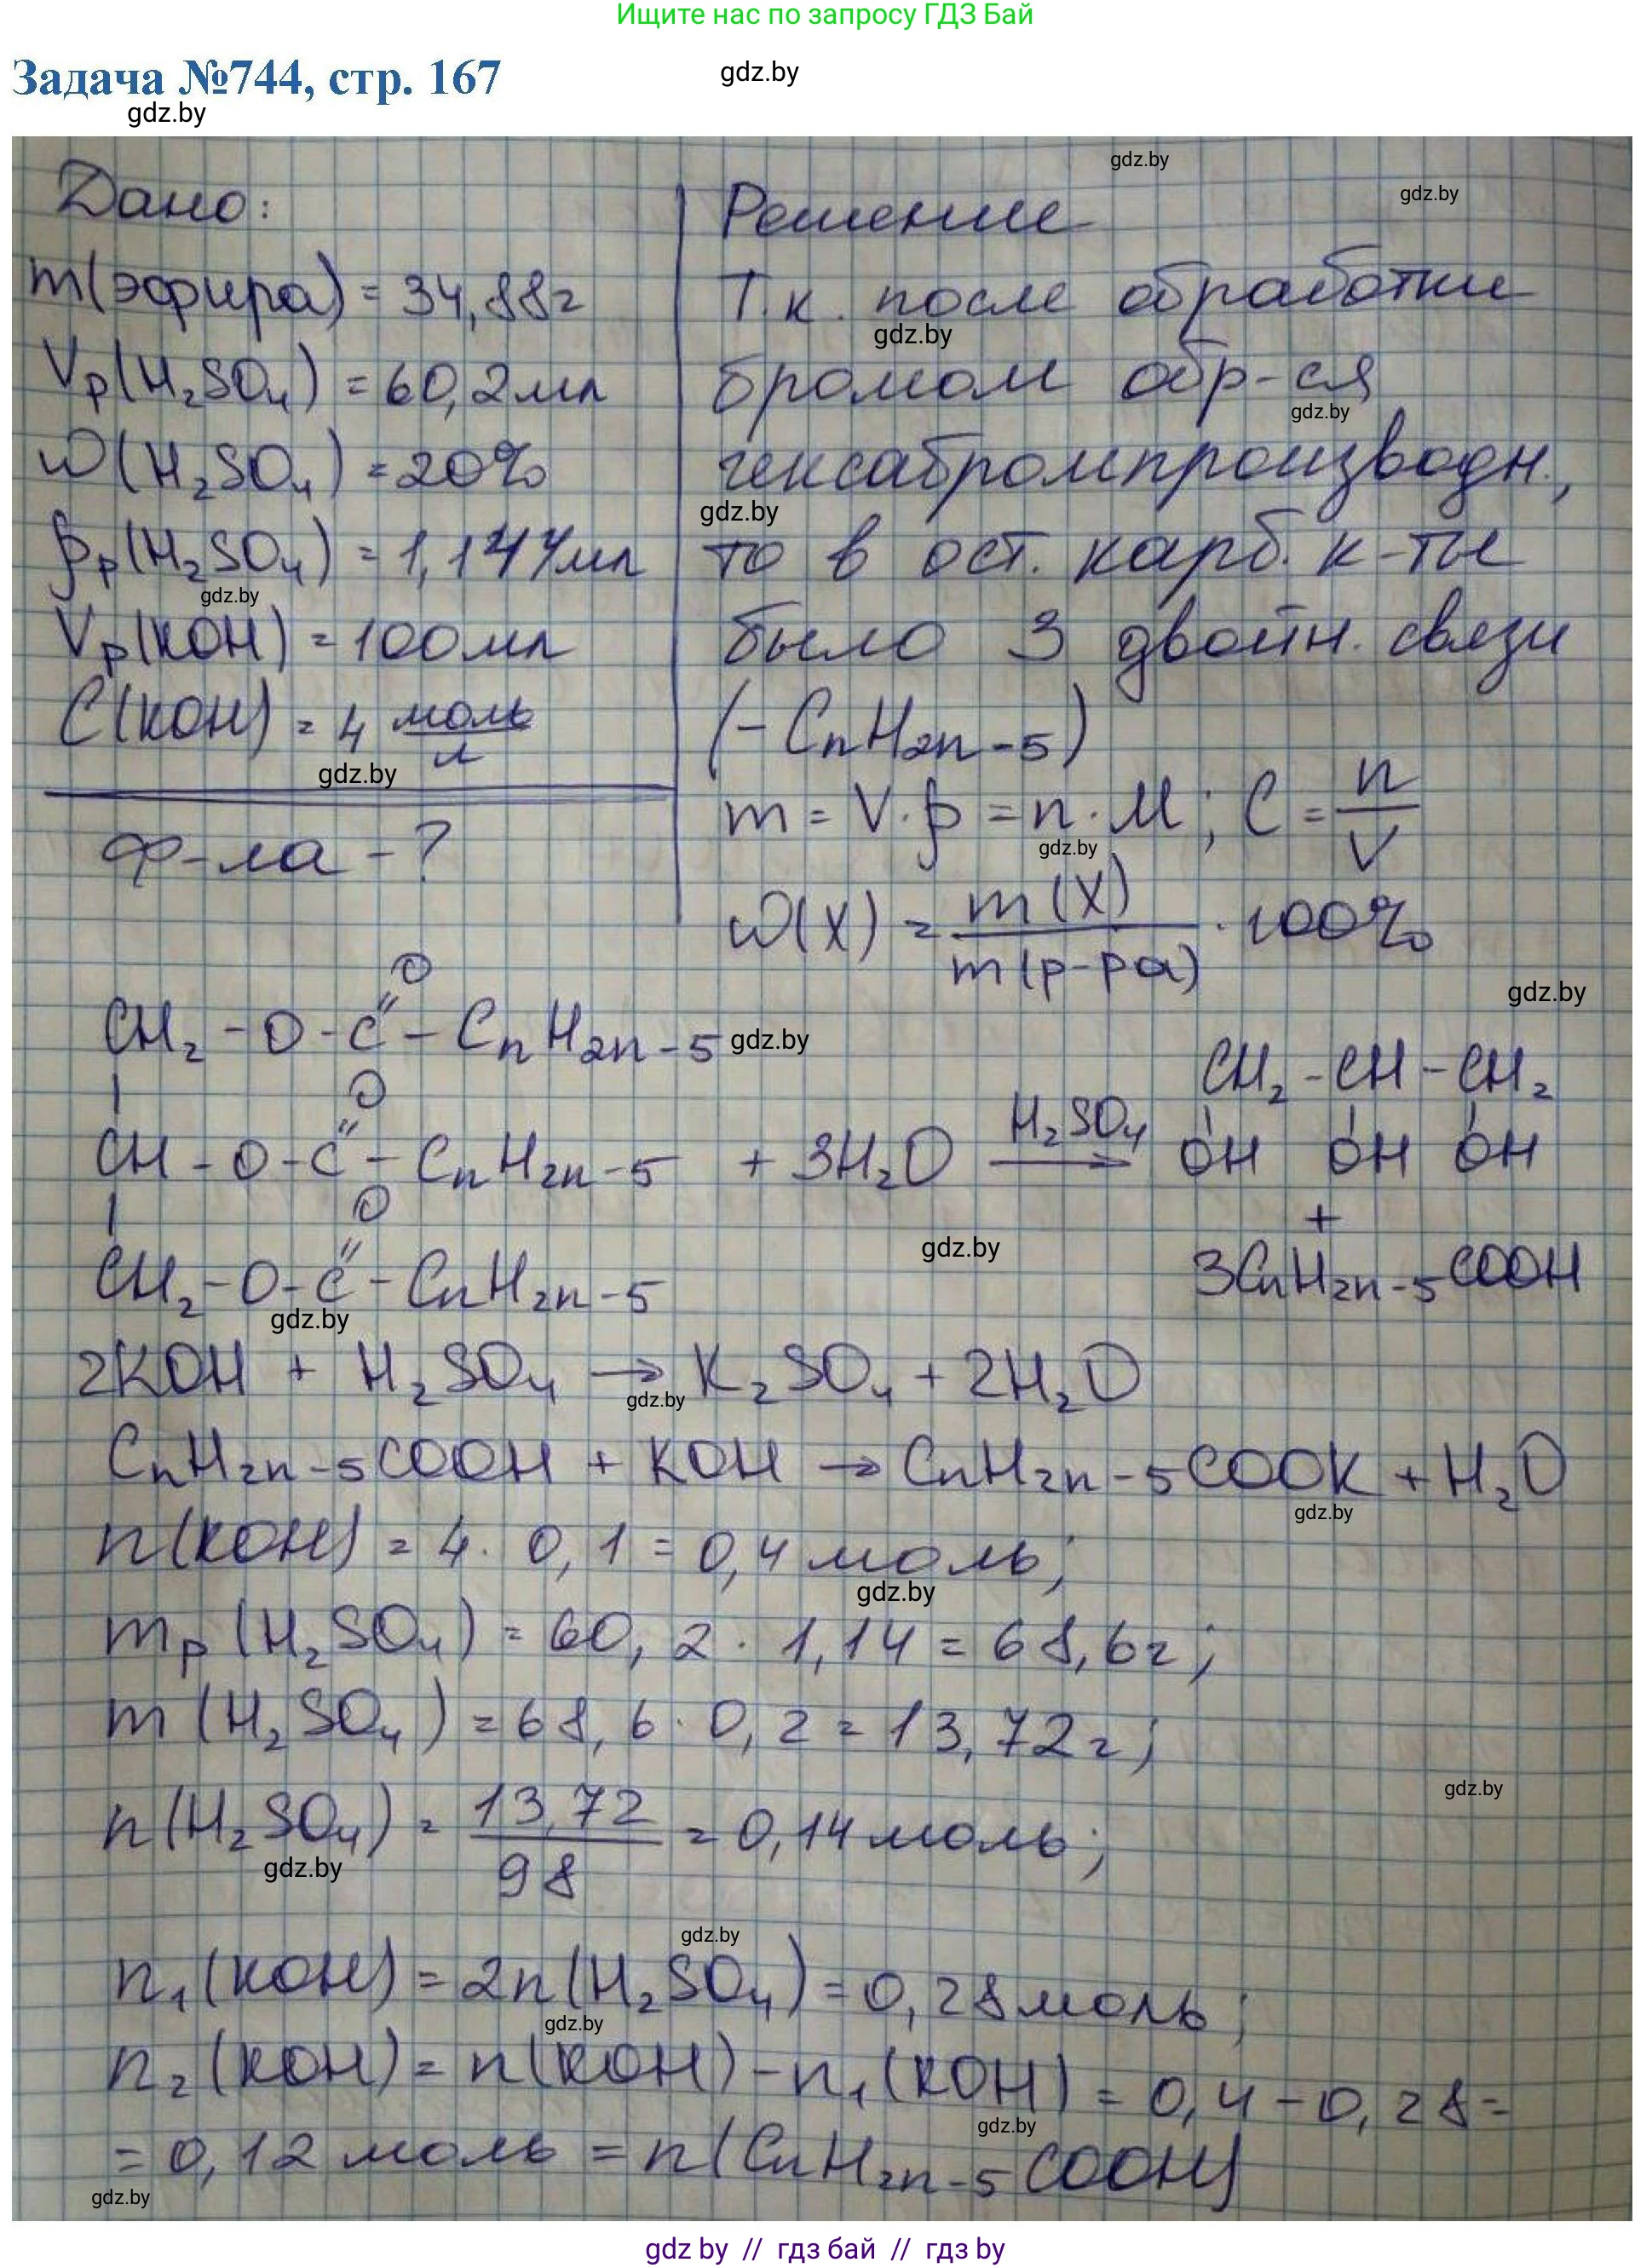 Ищите нас по запросу ГДЗ Бай
Задача №744, стр. 167
gdz.by
gdz.by
Дано:
m(эфира) = 34,88г
Vр(H₂SO₄) = 60,2мл
ω(H₂SO₄) = 20%
ρр(H₂SO₄) = 1,14г/мл
Vр(KOH) = 100мл
C(KOH) = 4 моль/л
ф-ла - ?
Решение
Т.к. после обработки
бромом обр-ся
гексабромпроизводн.,
то в ост. карб. к-ты
было 3 двойн. связи
(-CnH2n-5)
m = V·ρ = n·M; C = n/V
ω(X) = m(X)/m(р-ра) · 100%
O
CH₂-O-C"-CnH2n-5
| O
CH-O-C"-CnH2n-5 + 3H₂O →(H₂SO₄) CH₂-CH-CH₂
OH OH OH
| O +
CH₂-O-C"-CnH2n-5 3CnH2n-5COOH
2KOH + H₂SO₄ → K₂SO₄ + 2H₂O
CnH2n-5COOH + KOH → CnH2n-5COOK + H₂O
n(KOH) = 4·0,1 = 0,4 моль;
mр(H₂SO₄) = 60,2·1,14 = 68,6г;
m(H₂SO₄) = 68,6·0,2 = 13,72г;
n(H₂SO₄) = 13,72/98 = 0,14 моль;
n₁(KOH) = 2n(H₂SO₄) = 0,28 моль;
n₂(KOH) = n(KOH) - n₁(KOH) = 0,4 - 0,28 =
= 0,12 моль = n(CnH2n-5COOH)
gdz.by
gdz by // гдз бай // гдз by